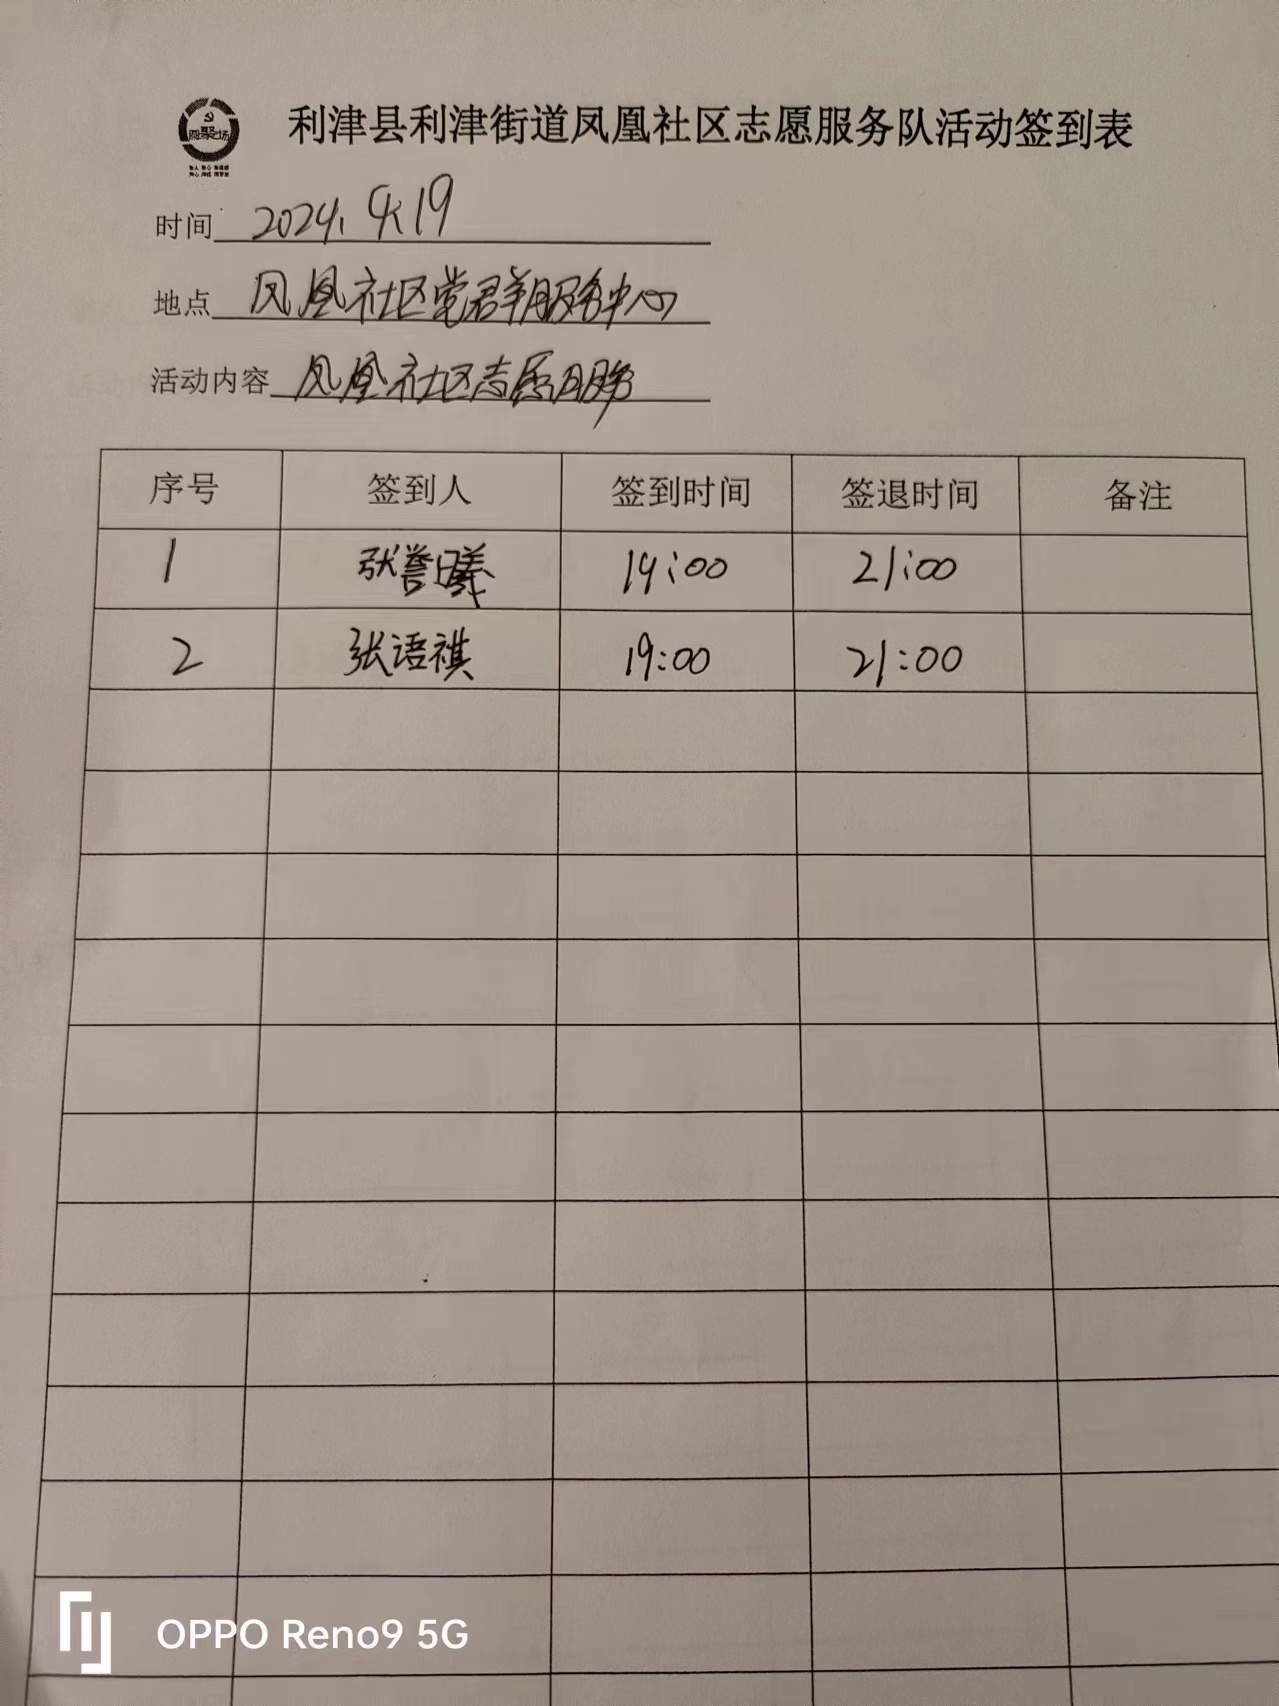 愿聚e场
利津县利津街道凤凰社区志愿服务队活动签到表
时间 2024.4.19
地点 凤凰社区党群服务中心
活动内容 凤凰社区志愿服务
序号 签到人 签到时间 签退时间 备注
1 张誉曦 19:00 21:00
2 张语祺 19:00 21:00
OPPO Reno9 5G